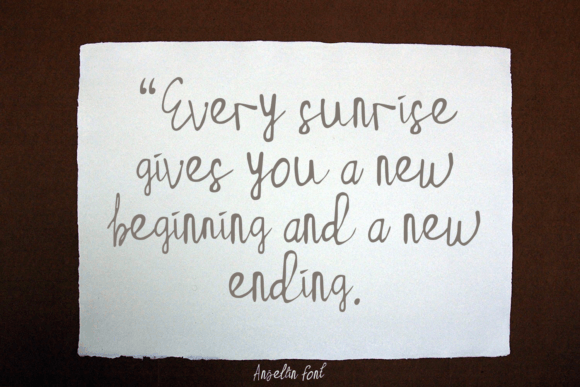 “Every sunrise
gives you a new
beginning and a new
ending.
Angelin font